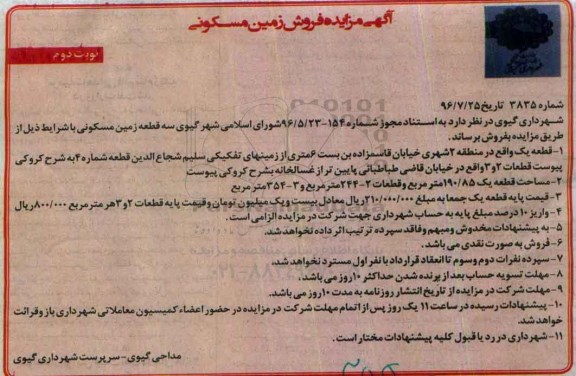 آگهی مزایده فروش زمین مسکونی
نوبت دوم
شماره ۳۸۳۵ تاریخ ۹۶/۷/۲۵
شهرداری گیوی در نظر دارد به استناد مجوز شماره ۱۵۴-۹۶/۵/۲۳ شورای اسلامی شهر گیوی سه قطعه زمین مسکونی با شرایط ذیل از
طریق مزایده بفروش برساند.
۱-قطعه یک واقع در منطقه ۲ شهری خیابان قاسمزاده بن بست ۶ متری از زمینهای تفکیکی سلیم شجاع الدین قطعه شماره ۴ به شرح کروکی
پیوست قطعات ۲ و ۳ واقع در خیابان قاضی طباطبائی پایین تر از غسالخانه بشرح کروکی پیوست
۲-مساحت قطعه یک ۱۹۰/۸۵ متر مربع و قطعات ۲-۲۴۴ متر مربع و ۳-۳۵۴ متر مربع
۳-قیمت پایه قطعه یک جمعا به مبلغ ۲۱۰/۰۰۰/۰۰۰ ریال معادل بیست و یک میلیون تومان و قیمت پایه قطعات ۲ و ۳ هر متر مربع ۸۰۰/۰۰۰ ریال
۴-واریز ۱۰ درصد مبلغ پایه به حساب شهرداری جهت شرکت در مزایده الزامی است.
۵-به پیشنهادات مخدوش و مبهم و فاقد سپرده ترتیب اثر داده نخواهد شد.
۶-فروش به صورت نقدی می باشد.
۷-سپرده نفرات دوم و سوم تا انعقاد قرارداد با نفر اول مسترد نخواهد شد.
۸-مهلت تسویه حساب بعد از برنده شدن حداکثر ۱۰ روز می باشد.
۹-مهلت شرکت در مزایده از تاریخ انتشار روزنامه به مدت ۱۰ روز می باشد.
۱۰-پیشنهادات رسیده در ساعت ۱۱ یک روز پس از اتمام مهلت شرکت در مزایده در حضور اعضاء کمیسیون معاملاتی شهرداری باز و قرائت
خواهد شد.
۱۱-شهرداری در رد یا قبول کلیه پیشنهادات مختار است.
مداحی گیوی-سرپرست شهرداری گیوی